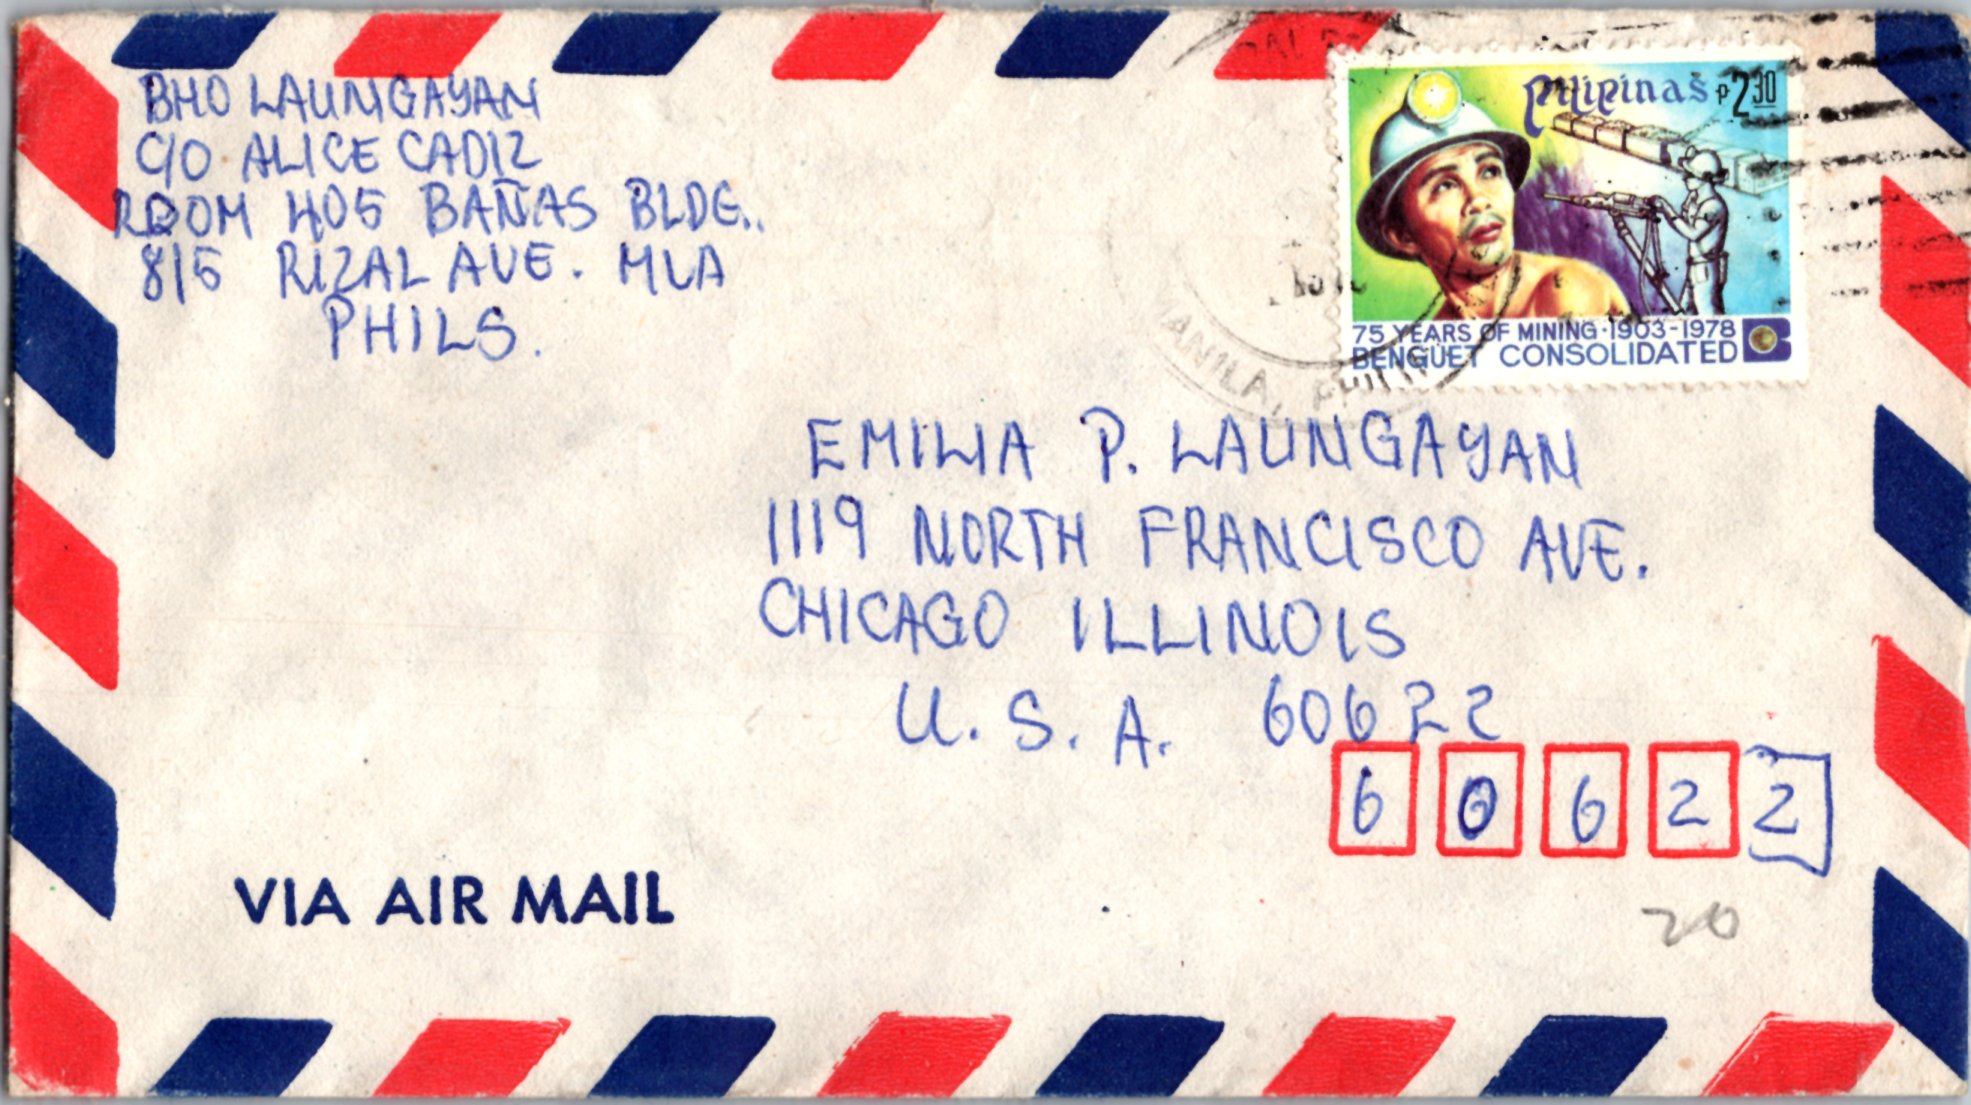 BHO LAUNGAYAN
C/O ALICE CADIZ
ROOM 405 BAÑAS BLDG..
815 RIZAL AVE. MLA
PHILS.
Pilipinas P2.30
75 YEARS OF MINING·1903-1978
BENGUET CONSOLIDATED
MANILA,
EMILIA P. LAUNGAYAN
1119 NORTH FRANCISCO AVE.
CHICAGO ILLINOIS
U.S.A. 60622
6 0 6 2 2
VIA AIR MAIL
20